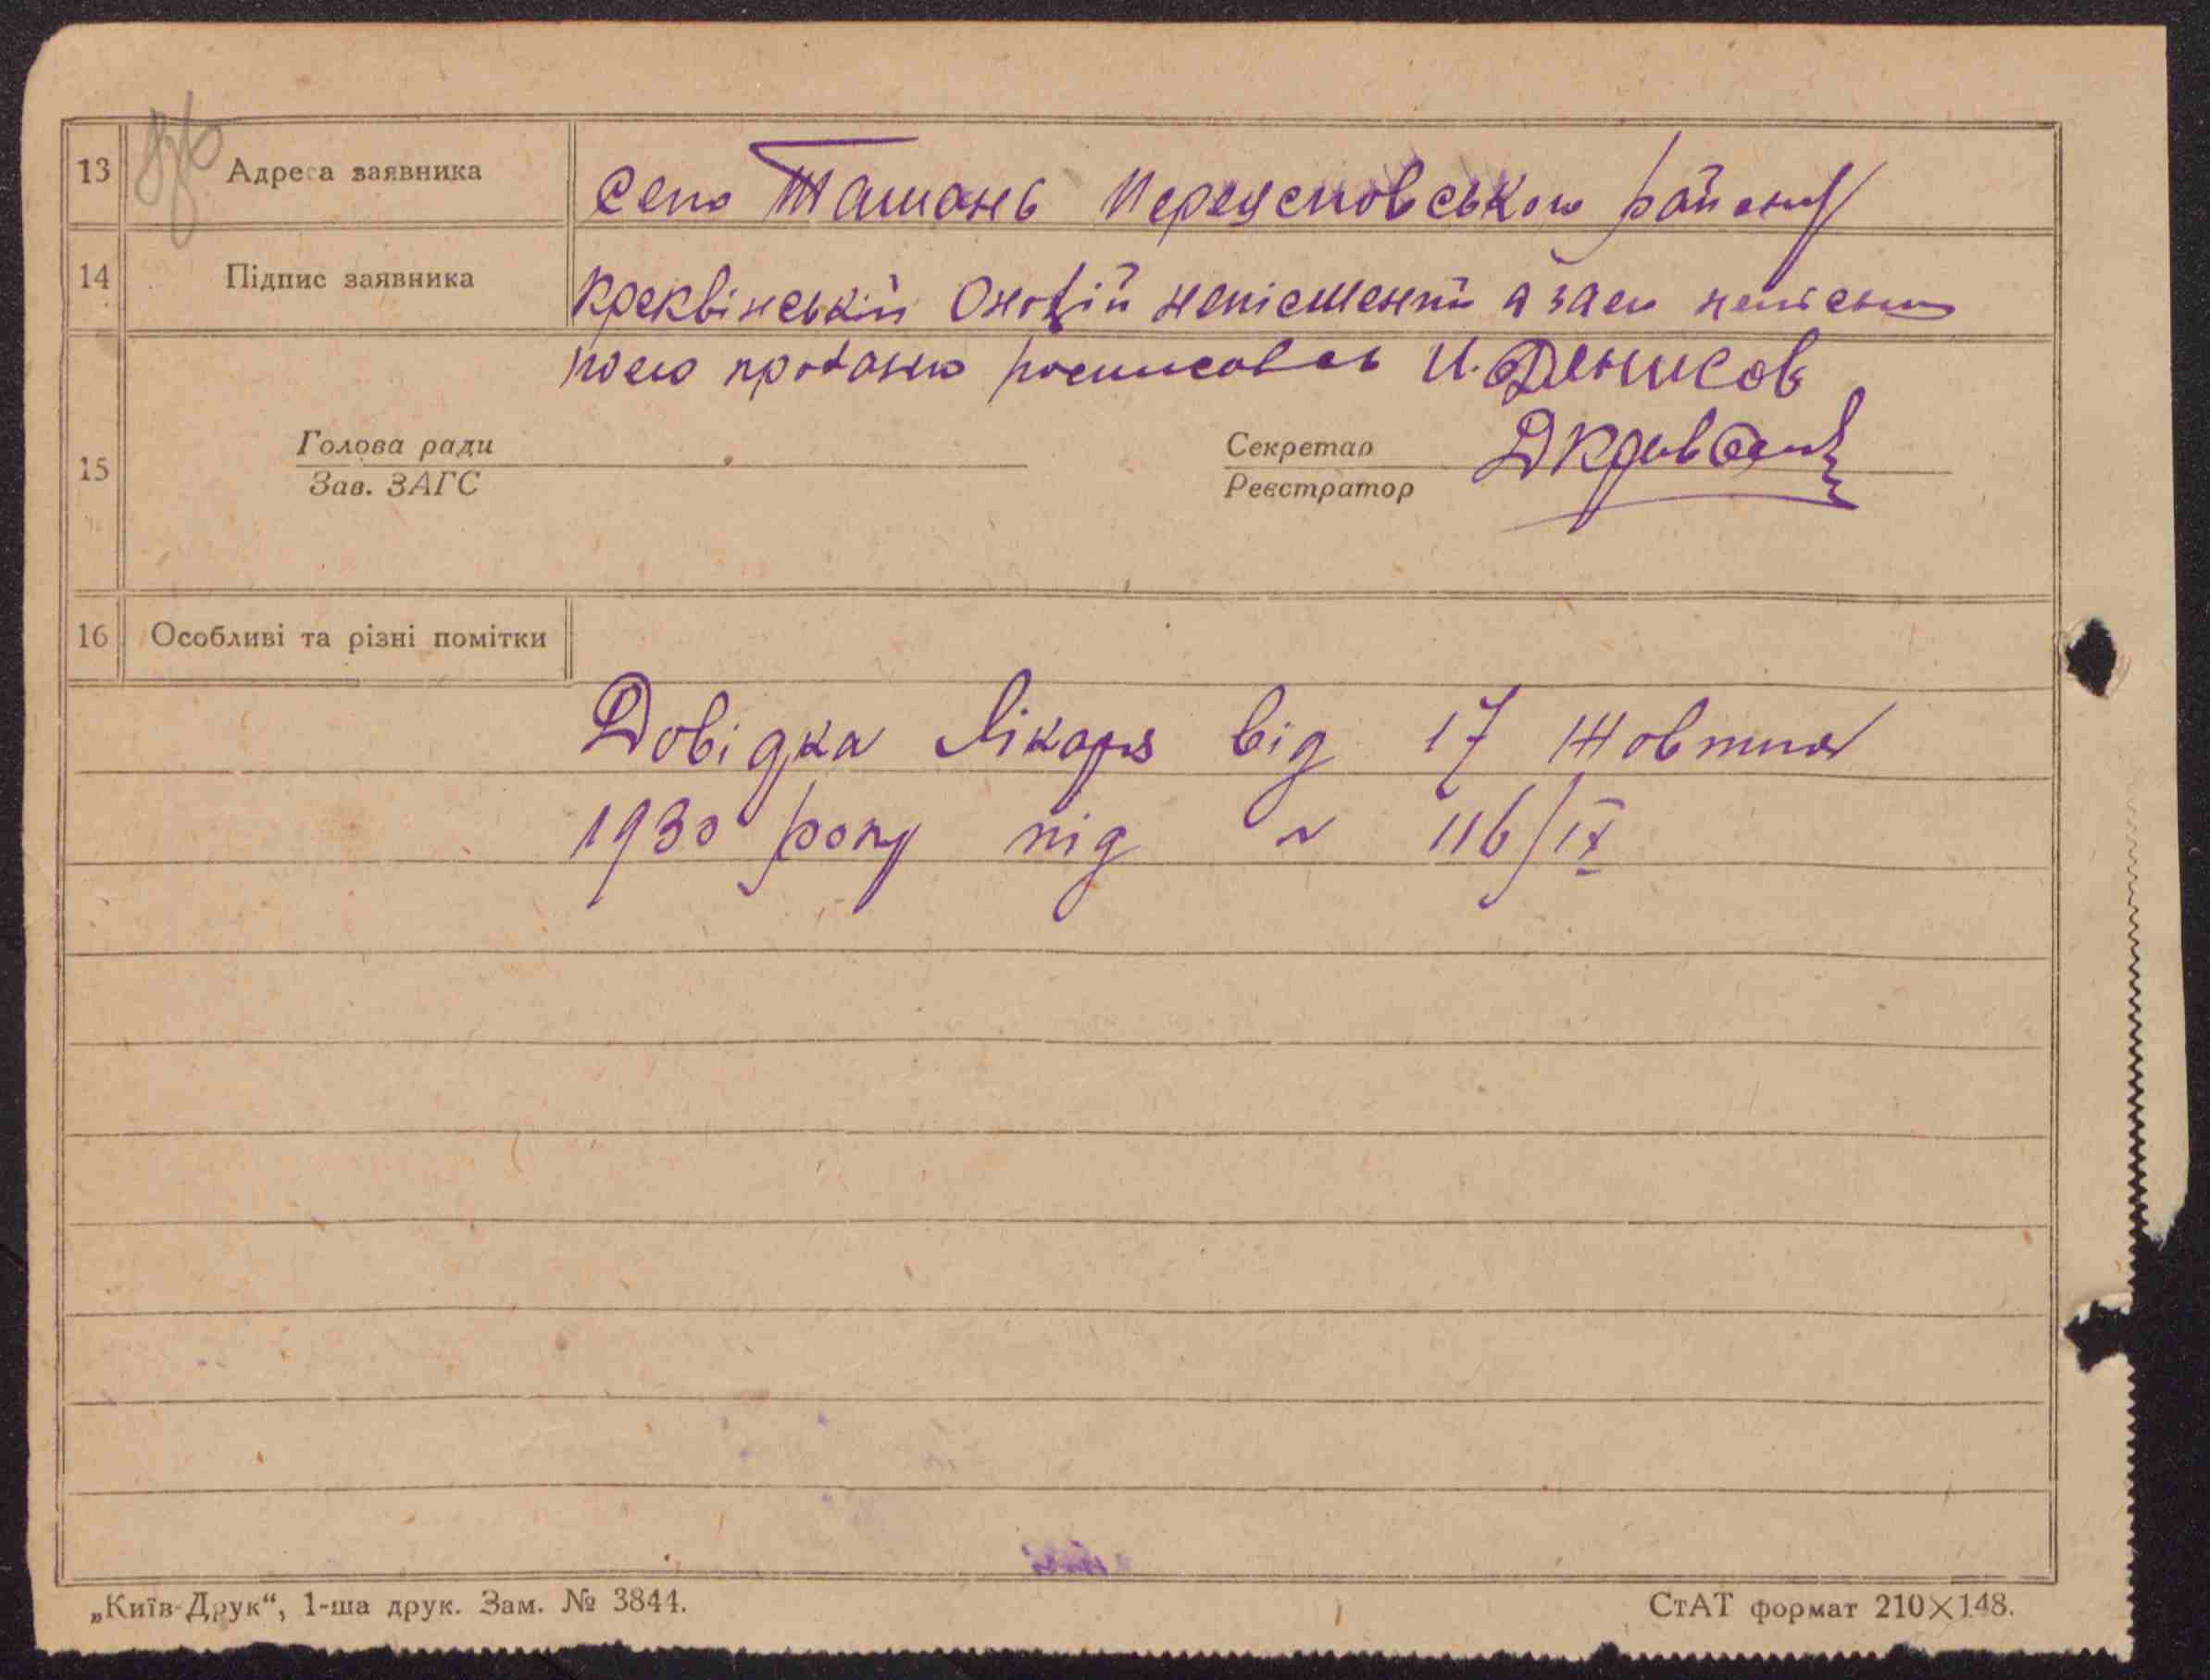 13 Адреса заявника село Ташань Переясловського району
14 Підпис заявника Креквінській Онофій непісмений а за єго
його проханю росписовавсь И. Денисов
15 Голова ради Секретар
Зав. ЗАГС Реєстратор
16 Особливі та різні помітки
Довідка Лікаря від 17 Жовтня
1930 року під № 116/IX
„Київ-Друк“, 1-ша друк. Зам. № 3844. СтАТ формат 210×148.